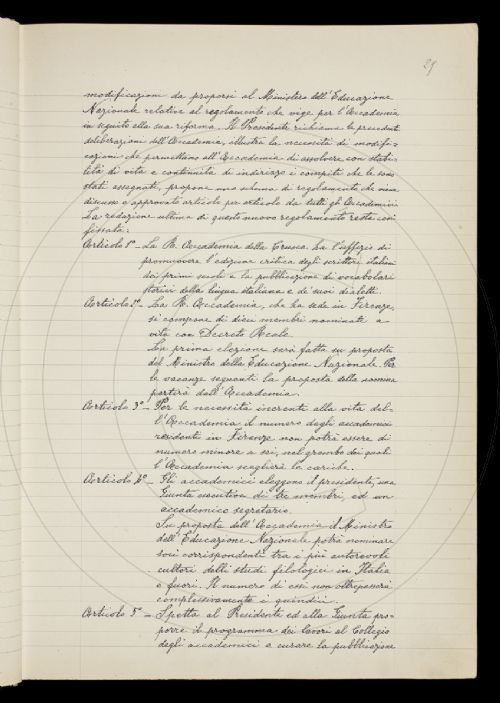 29
modificazioni da proporsi al Ministero dell'Educazione
Nazionale relative al regolamento che vige per l'Accademia
in seguito alla sua riforma. Il Presidente richiama le precedenti
deliberazioni dell'Accademia, illustra la necessità di modifi=
cazioni che permettano all'Accademia di assolvere, con stabi=
lità di vita e continuità di indirizzo i compiti che le sono
stati assegnati, propone uno schema di regolamento, che viene
discusso e approvato articolo per articolo da tutti gli Accademici.
La redazione ultima di questo nuovo regolamento resta così
fissata:
Articolo 1º - La R. Accademia della Crusca ha l'uffizio di
promuovere l'edizione critica degli scrittori italiani
dei primi secoli e la pubblicazione di vocabolari
storici della lingua italiana e de' suoi dialetti.
Articolo 2º - La R. Accademia, che ha sede in Firenze,
si compone di dieci membri nominati a
vita con Decreto Reale.
La prima elezione sarà fatta su proposta
del Ministro della Educazione Nazionale. Per
le vacanze seguenti la proposta della nomina
partirà dall'Accademia.
Articolo 3º - Per le necessità increnti alla vita del=
l'Accademia il numero degli accademici
residenti in Firenze non potrà essere di
numero minore a sei, nel grembo dei quali
l'Accademia sceglierà le cariche.
Articolo 4º - Gli accademici eleggono il presidente, una
Giunta esecutiva di tre membri, ed un
accademico segretario.
Su proposta dell'Accademia il Ministro
dell'Educazione Nazionale potrà nominare
soci corrispondenti tra i più autorevoli
cultori delli studi filologici in Italia
e fuori. Il numero di essi non oltrepasserà
complessivamente i quindici.
Articolo 5º - Spetta al Presidente ed alla Giunta pro=
porre il programma dei lavori al Collegio
degli accademici e curare la pubblicazione